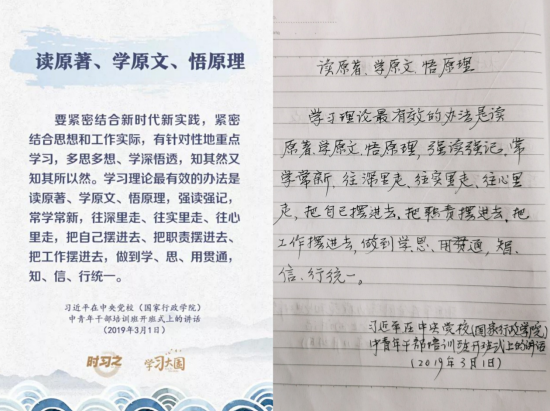 读原著、学原文、悟原理
要紧密结合新时代新实践，紧密
结合思想和工作实际，有针对性地重点
学习，多思多想、学深悟透，知其然又
知其所以然。学习理论最有效的办法是
读原著、学原文、悟原理，强读强记，
常学常新，往深里走、往实里走、往心
里走，把自己摆进去、把职责摆进去、
把工作摆进去，做到学、思、用贯通，
知、信、行统一。
习近平在中央党校（国家行政学院）
中青年干部培训班开班式上的讲话
（2019年3月1日）
时习之
学习大国
读原著、学原文、悟原理
学习理论最有效的办法是读
原著、学原文、悟原理，强读强记，常
学常新，往深里走、往实里走、往心里
走，把自己摆进去，把职责摆进去，把
工作摆进去，做到学、思、用贯通，知、
信、行统一。
习近平在中央党校（国家行政学院）
中青年干部培训班开班式上的讲话
（2019年3月1日）